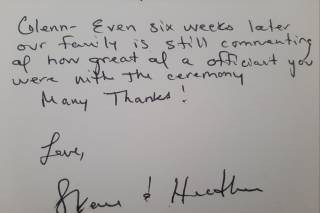 Glenn- Even six weeks later
our family is still commenting
of how great of a officiant you
were with the ceremony
Many Thanks!
Love,
& Heather